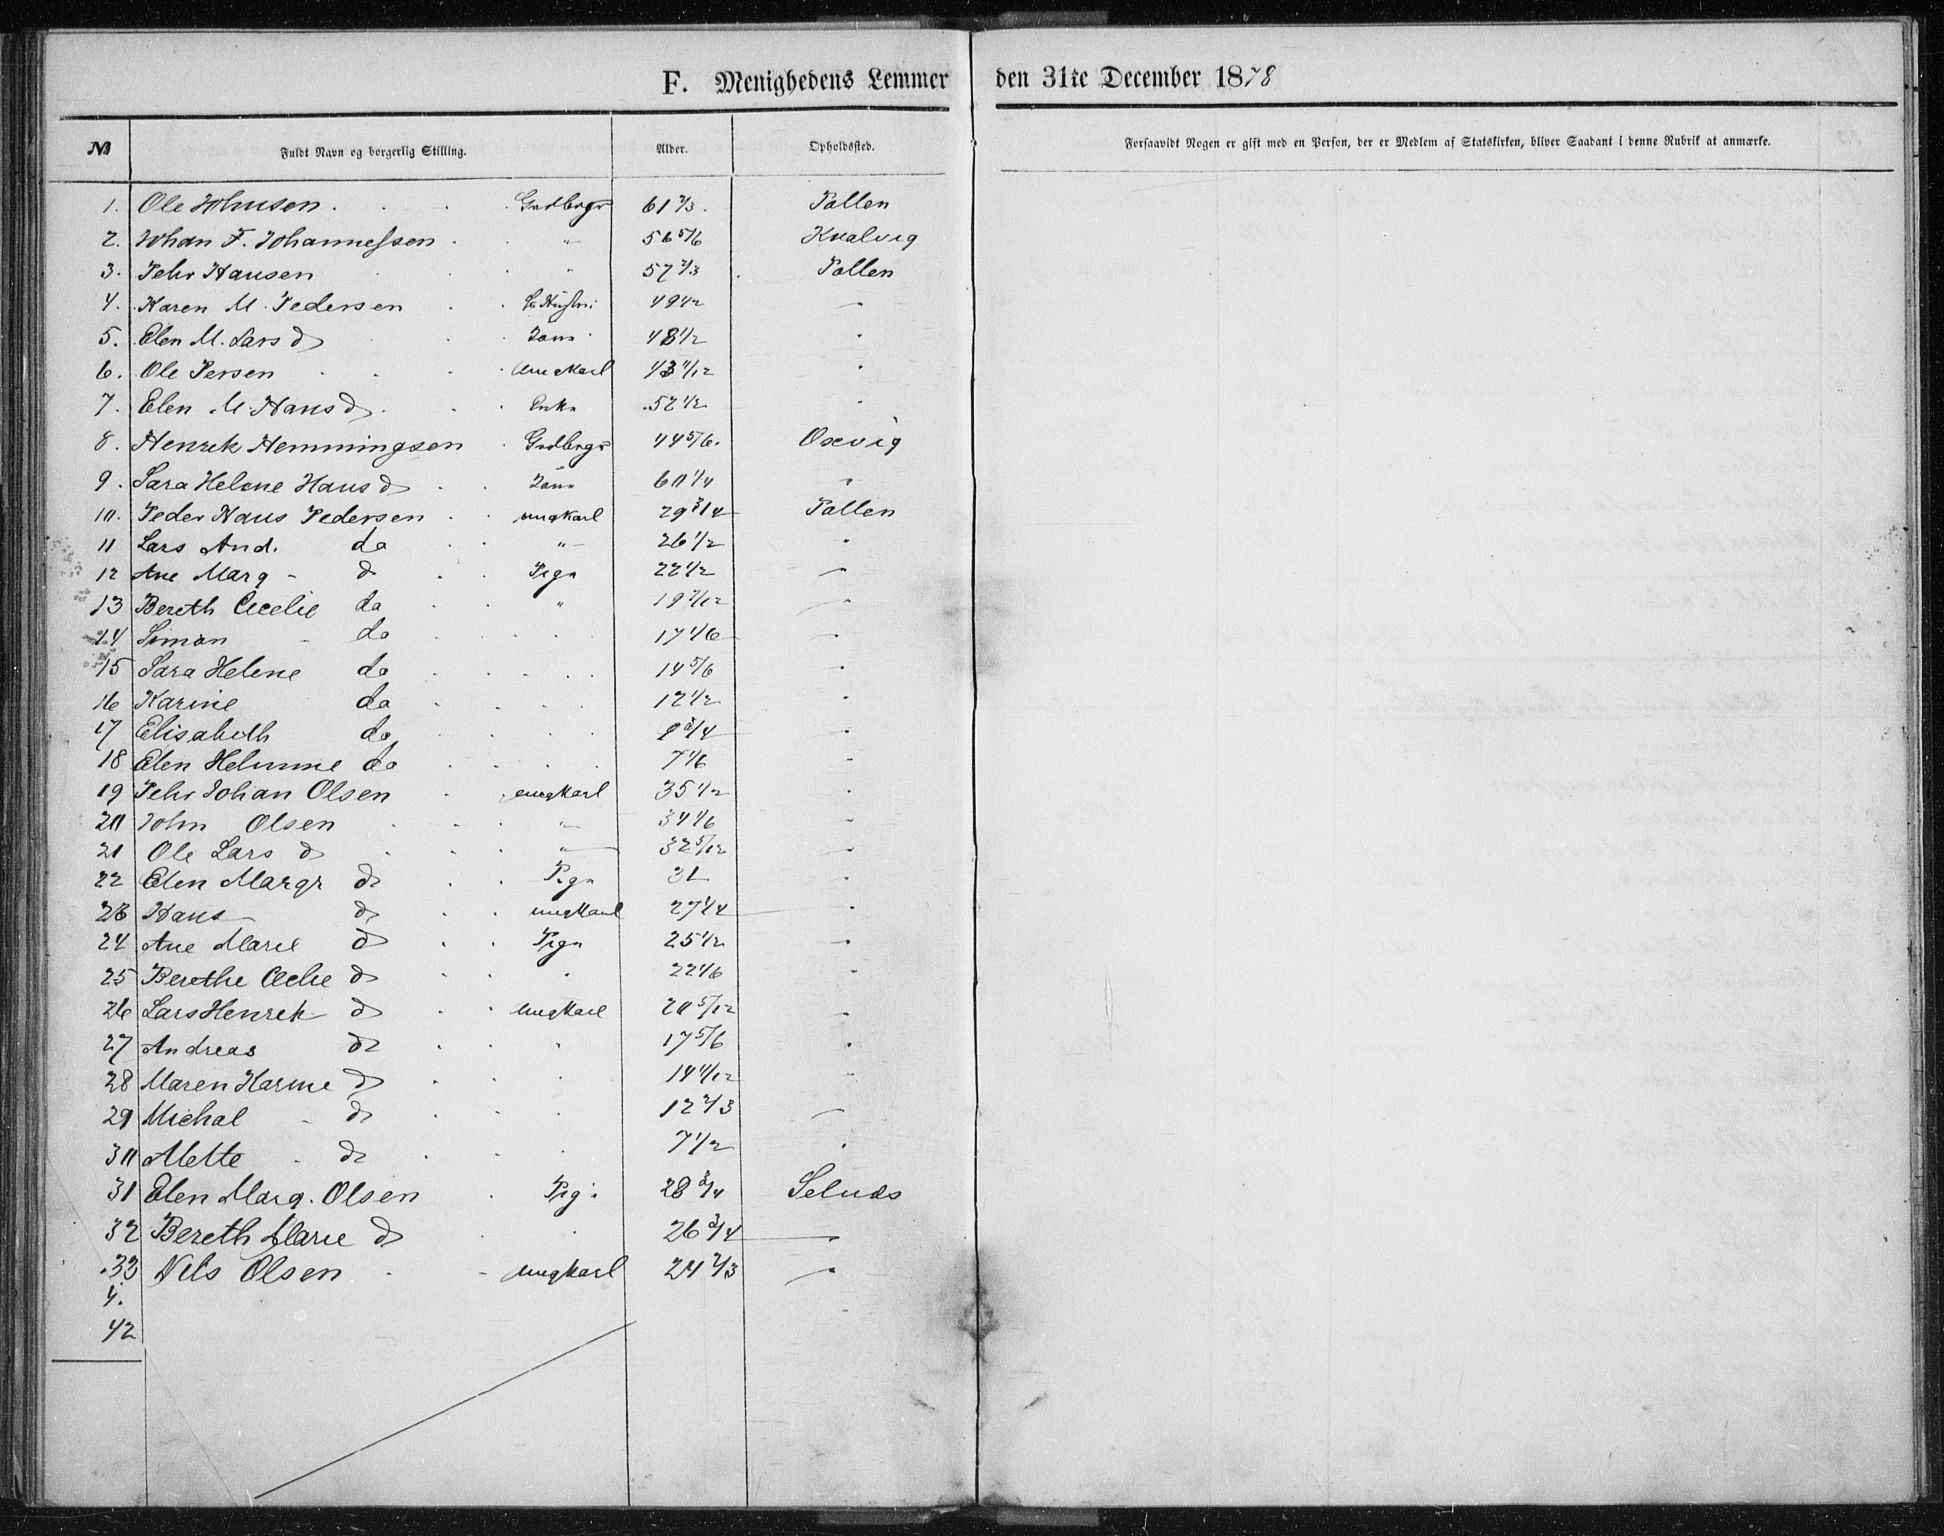 F. Menighedens Lemmer den 31te December 1878
No Fuldt Navn og borgerlig Stilling. Alder. Opholdssted. Forsaavidt Nogen er gift med en Person, der er Medlem af Statskirken, bliver Saadant i denne Rubrik at anmærke.
1. Ole Johnsen Grdbrgr 61 2/3 Pollen
2. Johan F. Johannessen " 56 5/6 Kvalvig
3. Pehr Hansen " 57 2/3 Pollen
4. Karen M. Pedersen 49 1/2 "
5. Elen M. Lars d 48 1/2 "
6. Ole Persen Ungkarl 43 11/12 "
7. Elen M. Hans d Enke 52 1/2 "
8. Henrik Hemmingsen Grdbrgr 44 5/6 Oxvig
9. Sara Helene Hans d 60 1/4 "
10. Peder Hans Pedersen ungkarl 29 3/4 Pollen
11 Lars And. do " 26 1/2 "
12 Ane Marg - d Pige 22 1/2 "
13 Bereth Cecelie do " 19 7/12 "
14 Simon - do 17 1/6 "
15 Sara Helene do 14 5/6 "
16 Karine do 12 1/2 "
17 Elisabeth do 9 3/4 "
18 Elen Helmine do 7 1/6 "
19 Pehr Johan Olsen ungkarl 35 1/2 "
20 John Olsen " 34 1/6 "
21 Ole Lars d " 32 5/12 "
22 Elen Margr do Pige 31 "
23 Hans do ungkarl 27 1/4 "
24 Ane Marie do Pige 25 1/2 "
25 Berethe Cecelie do " 22 1/6 "
26 Lars Henrik do Ungkarl 20 5/12 "
27 Andreas do " 17 5/6 "
28 Maren Karine do 14 11/12 "
29 Michal - do 12 2/3 "
30 Mette - do 7 1/2 "
31 Elen Marg. Olsen Pige 28 3/4 Selnæs
32 Bereth Marie do " 26 3/4 "
33 Nels Olsen - ungkarl 24 2/3 "
4.
42